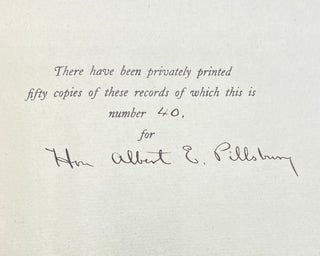 There have been privately printed
fifty copies of these records of which this is
number 40,
for
Hon Albert E. Pillsbury